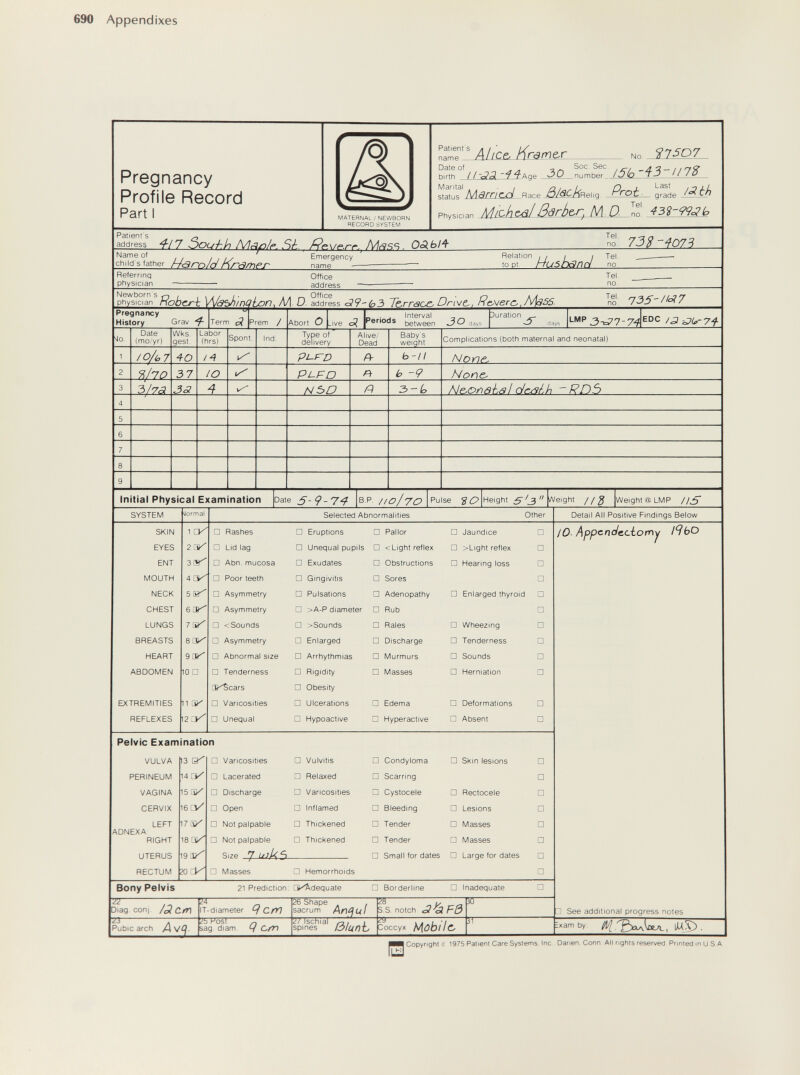 690 Appendixes
Pregnancy
Profile Record
Part I
MATERNAL / NEWBORN
RECORD SYSTEM
Patient's name Alice Kramer No. 97507
Date of birth 11-22-44 Age 30 Soc. Sec. number 156-43-1178
Marital status Married Race Black Relig Prot Last grade 12th
Physician Micheal Barber, M D Tel. no. 438-9926
Patient's address 417 South Maple St. Revere, Mass. 02614 Tel. no. 738-4073
Name of child's father Harold Kramer Emergency name — Relation to pt Husband Tel. no. —
Referring physician — Office address — Tel. no. —
Newborn's physician Robert Washington, M D. Office address 29-63 Terrace Drive, Revere, Mass. Tel. no. 735-1627
Pregnancy History Grav 4 Term 2 Prem 1 Abort 0 Live 2 Periods Interval between 30 days Duration 5 days LMP 3-27-74 EDC 12 26-74
No. Date (mo/yr) Wks. gest. Labor (hrs) Spont. Ind. Type of delivery Alive/Dead Baby's weight Complications (both maternal and neonatal)
1 10/67 40 14 ✓ PLFD A 6-11 None
2 8/70 37 10 ✓ PLFD A 6-9 None
3 3/72 32 4 ✓ NSD A 3-6 Neonatal death - RDS
4
5
6
7
8
9
Initial Physical Examination Date 5-9-74 B.P. 110/70 Pulse 80 Height 5'3" Weight 118 Weight @ LMP 115
SYSTEM Normal Selected Abnormalities Other Detail All Positive Findings Below
SKIN 1 ☑ □ Rashes □ Eruptions □ Pallor □ Jaundice □ 10. Appendectomy 1960
EYES 2 ☑ □ Lid lag □ Unequal pupils □ <Light reflex □ >Light reflex □
ENT 3 ☑ □ Abn. mucosa □ Exudates □ Obstructions □ Hearing loss □
MOUTH 4 ☑ □ Poor teeth □ Gingivitis □ Sores □
NECK 5 ☑ □ Asymmetry □ Pulsations □ Adenopathy □ Enlarged thyroid □
CHEST 6 ☑ □ Asymmetry □ >A-P diameter □ Rub □
LUNGS 7 ☑ □ <Sounds □ >Sounds □ Rales □ Wheezing □
BREASTS 8 ☑ □ Asymmetry □ Enlarged □ Discharge □ Tenderness □
HEART 9 ☑ □ Abnormal size □ Arrhythmias □ Murmurs □ Sounds □
ABDOMEN 10 □ □ Tenderness □ Rigidity □ Masses □ Herniation □
☑ Scars □ Obesity
EXTREMITIES 11 ☑ □ Varicosities □ Ulcerations □ Edema □ Deformations □
REFLEXES 12 ☑ □ Unequal □ Hypoactive □ Hyperactive □ Absent □
Pelvic Examination
VULVA 13 ☑ □ Varicosities □ Vulvitis □ Condyloma □ Skin lesions □
PERINEUM 14 ☑ □ Lacerated □ Relaxed □ Scarring □
VAGINA 15 ☑ □ Discharge □ Varicosities □ Cystocele □ Rectocele □
CERVIX 16 ☑ □ Open □ Inflamed □ Bleeding □ Lesions □
LEFT 17 ☑ □ Not palpable □ Thickened □ Tender □ Masses □
ADNEXA
RIGHT 18 ☑ □ Not palpable □ Thickened □ Tender □ Masses □
UTERUS 19 ☑ Size 7 wks □ Small for dates □ Large for dates □
RECTUM 20 ☑ □ Masses □ Hemorrhoids □
Bony Pelvis 21 Prediction: ☑ Adequate □ Borderline □ Inadequate □
22 Diag. conj. 12 cm 24 T-diameter 9 cm 26 Shape sacrum Angul 28 S.S. notch 2 1/2 FB 30 □ See additional progress notes
23 Pubic arch Avg. 25 Post sag. diam. 9 cm 27 Ischial spines Blunt 29 Coccyx Mobile 31 Exam by: M. Barber, MD.
Copyright © 1975 Patient Care Systems, Inc. Darien, Conn. All rights reserved. Printed in U.S.A.